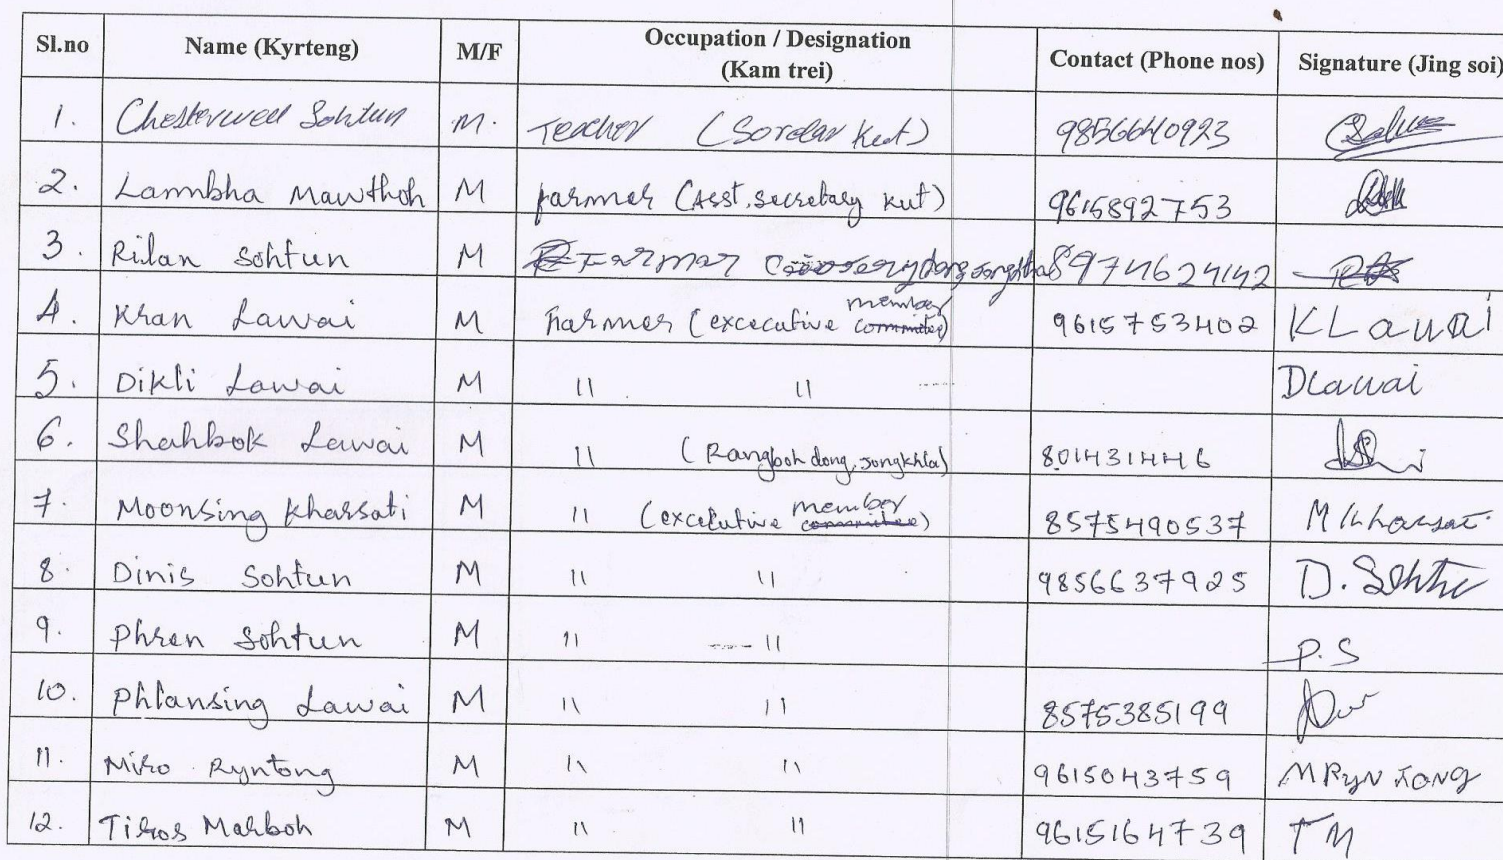 Sl.no Name (Kyrteng) M/F Occupation / Designation (Kam trei) Contact (Phone nos) Signature (Jing soi)
1. Chesterwell Sohtun M. Teacher (Sordar Kut) 9856640923
2. Lambha Mawthoh M farmer (Asst. secretary Kut) 9615892753
3. Rilan Sohtun M Farmar 8974624142
4. Kran Lawai M Farmer (excecutive member) 9615753402 K Lawai
5. Dikli Lawai M 〃 〃 DLawai
6. Shahbok Lawai M 〃 (Rangboh dong, Jongkhla) 801431446
7. Moonsing Kharsati M 〃 (excecutive member) 8575490537 M Kharsati
8. Dinis Sohtun M 〃 〃 9856637925 D. Sohtu
9. Phren Sohtun M 〃 〃 P.S
10. Phlansing Lawai M 〃 〃 8575385199
11. Miro Ryntong M 〃 〃 9615043759 M Ryntong
12. Tiros Marboh M 〃 〃 9615164739 TM